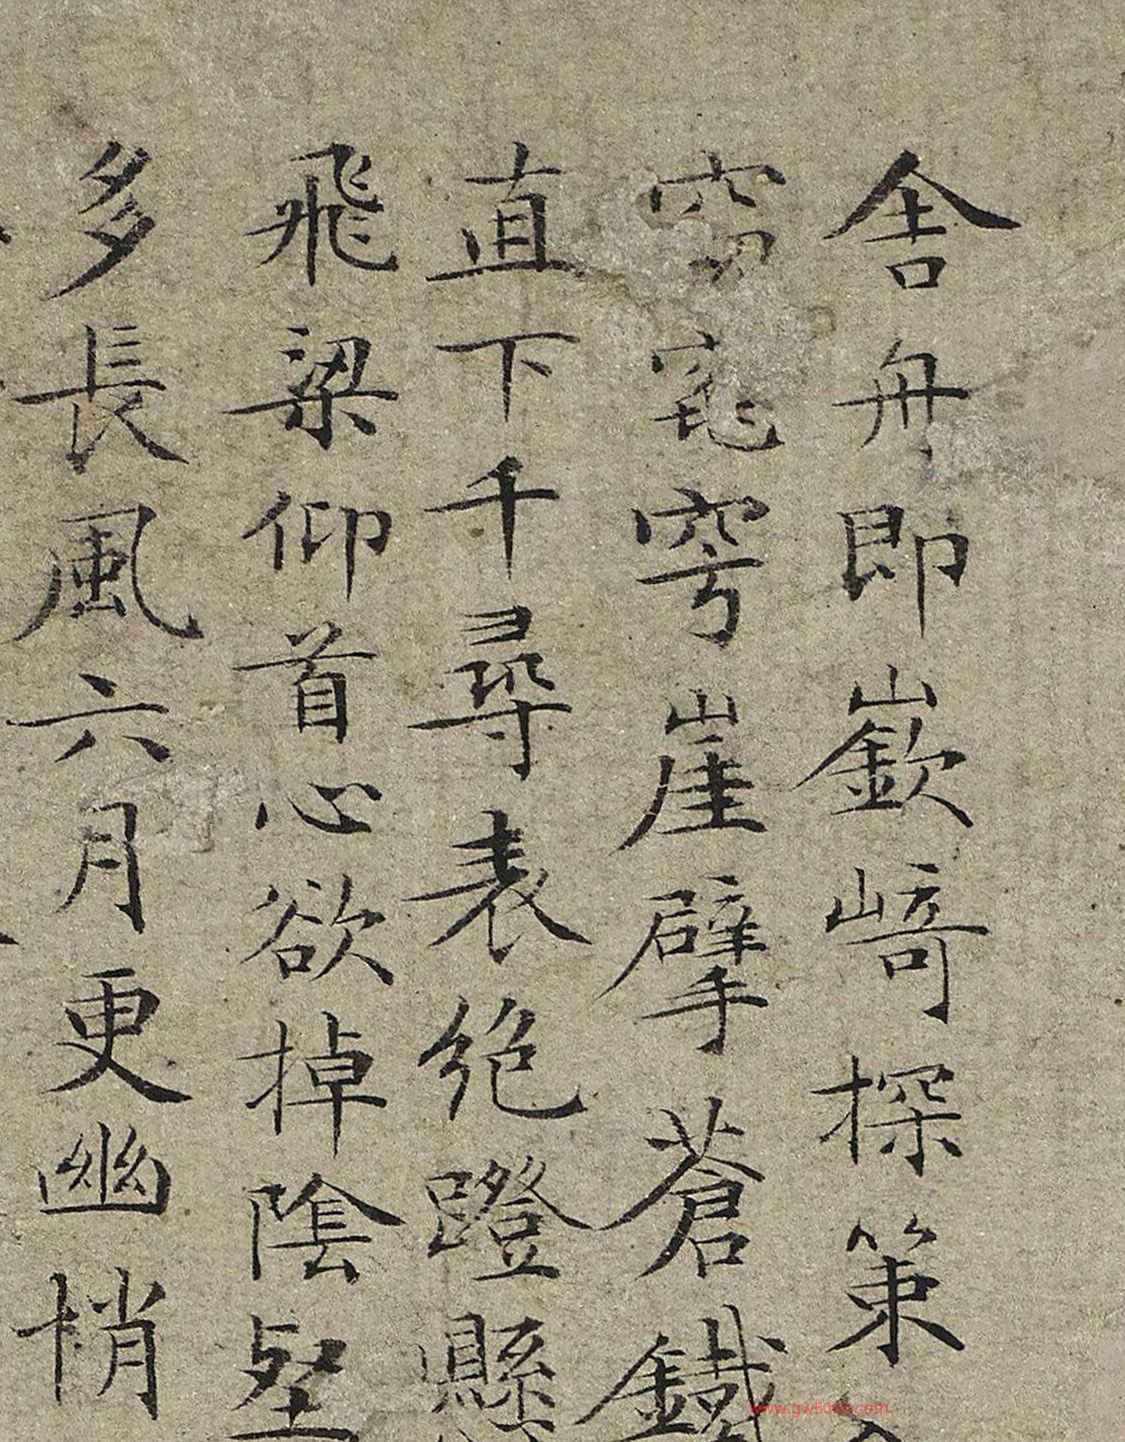 舍舟即嶔﨑探策
窈窕穹崖擘蒼鐵
直下千尋表絶蹬懸
飛梁仰首心欲掉陰壑
多長風六月更幽悄
www.gw5000.com